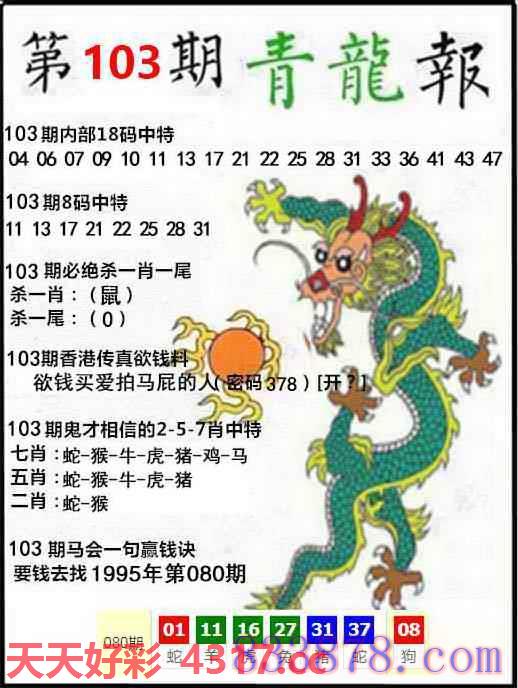 第103期 青龍報
103期内部18码中特
04 06 07 09 10 11 13 17 21 22 25 28 31 33 36 41 43 47
103期8码中特
11 13 17 21 22 25 28 31
103期必绝杀一肖一尾
杀一肖：（鼠）
杀一尾：（0）
103期香港传真欲钱料
欲钱买爱拍马屁的人（密码378）[开？]
103期鬼才相信的2-5-7肖中特
七肖：蛇-猴-牛-虎-猪-鸡-马
五肖：蛇-猴-牛-虎-猪
二肖：蛇-猴
103期马会一句赢钱诀
要钱去找1995年第080期
080期 01 11 16 27 31 37 08
蛇 羊 虎 兔 猪 蛇 狗
天天好彩·4317.cc